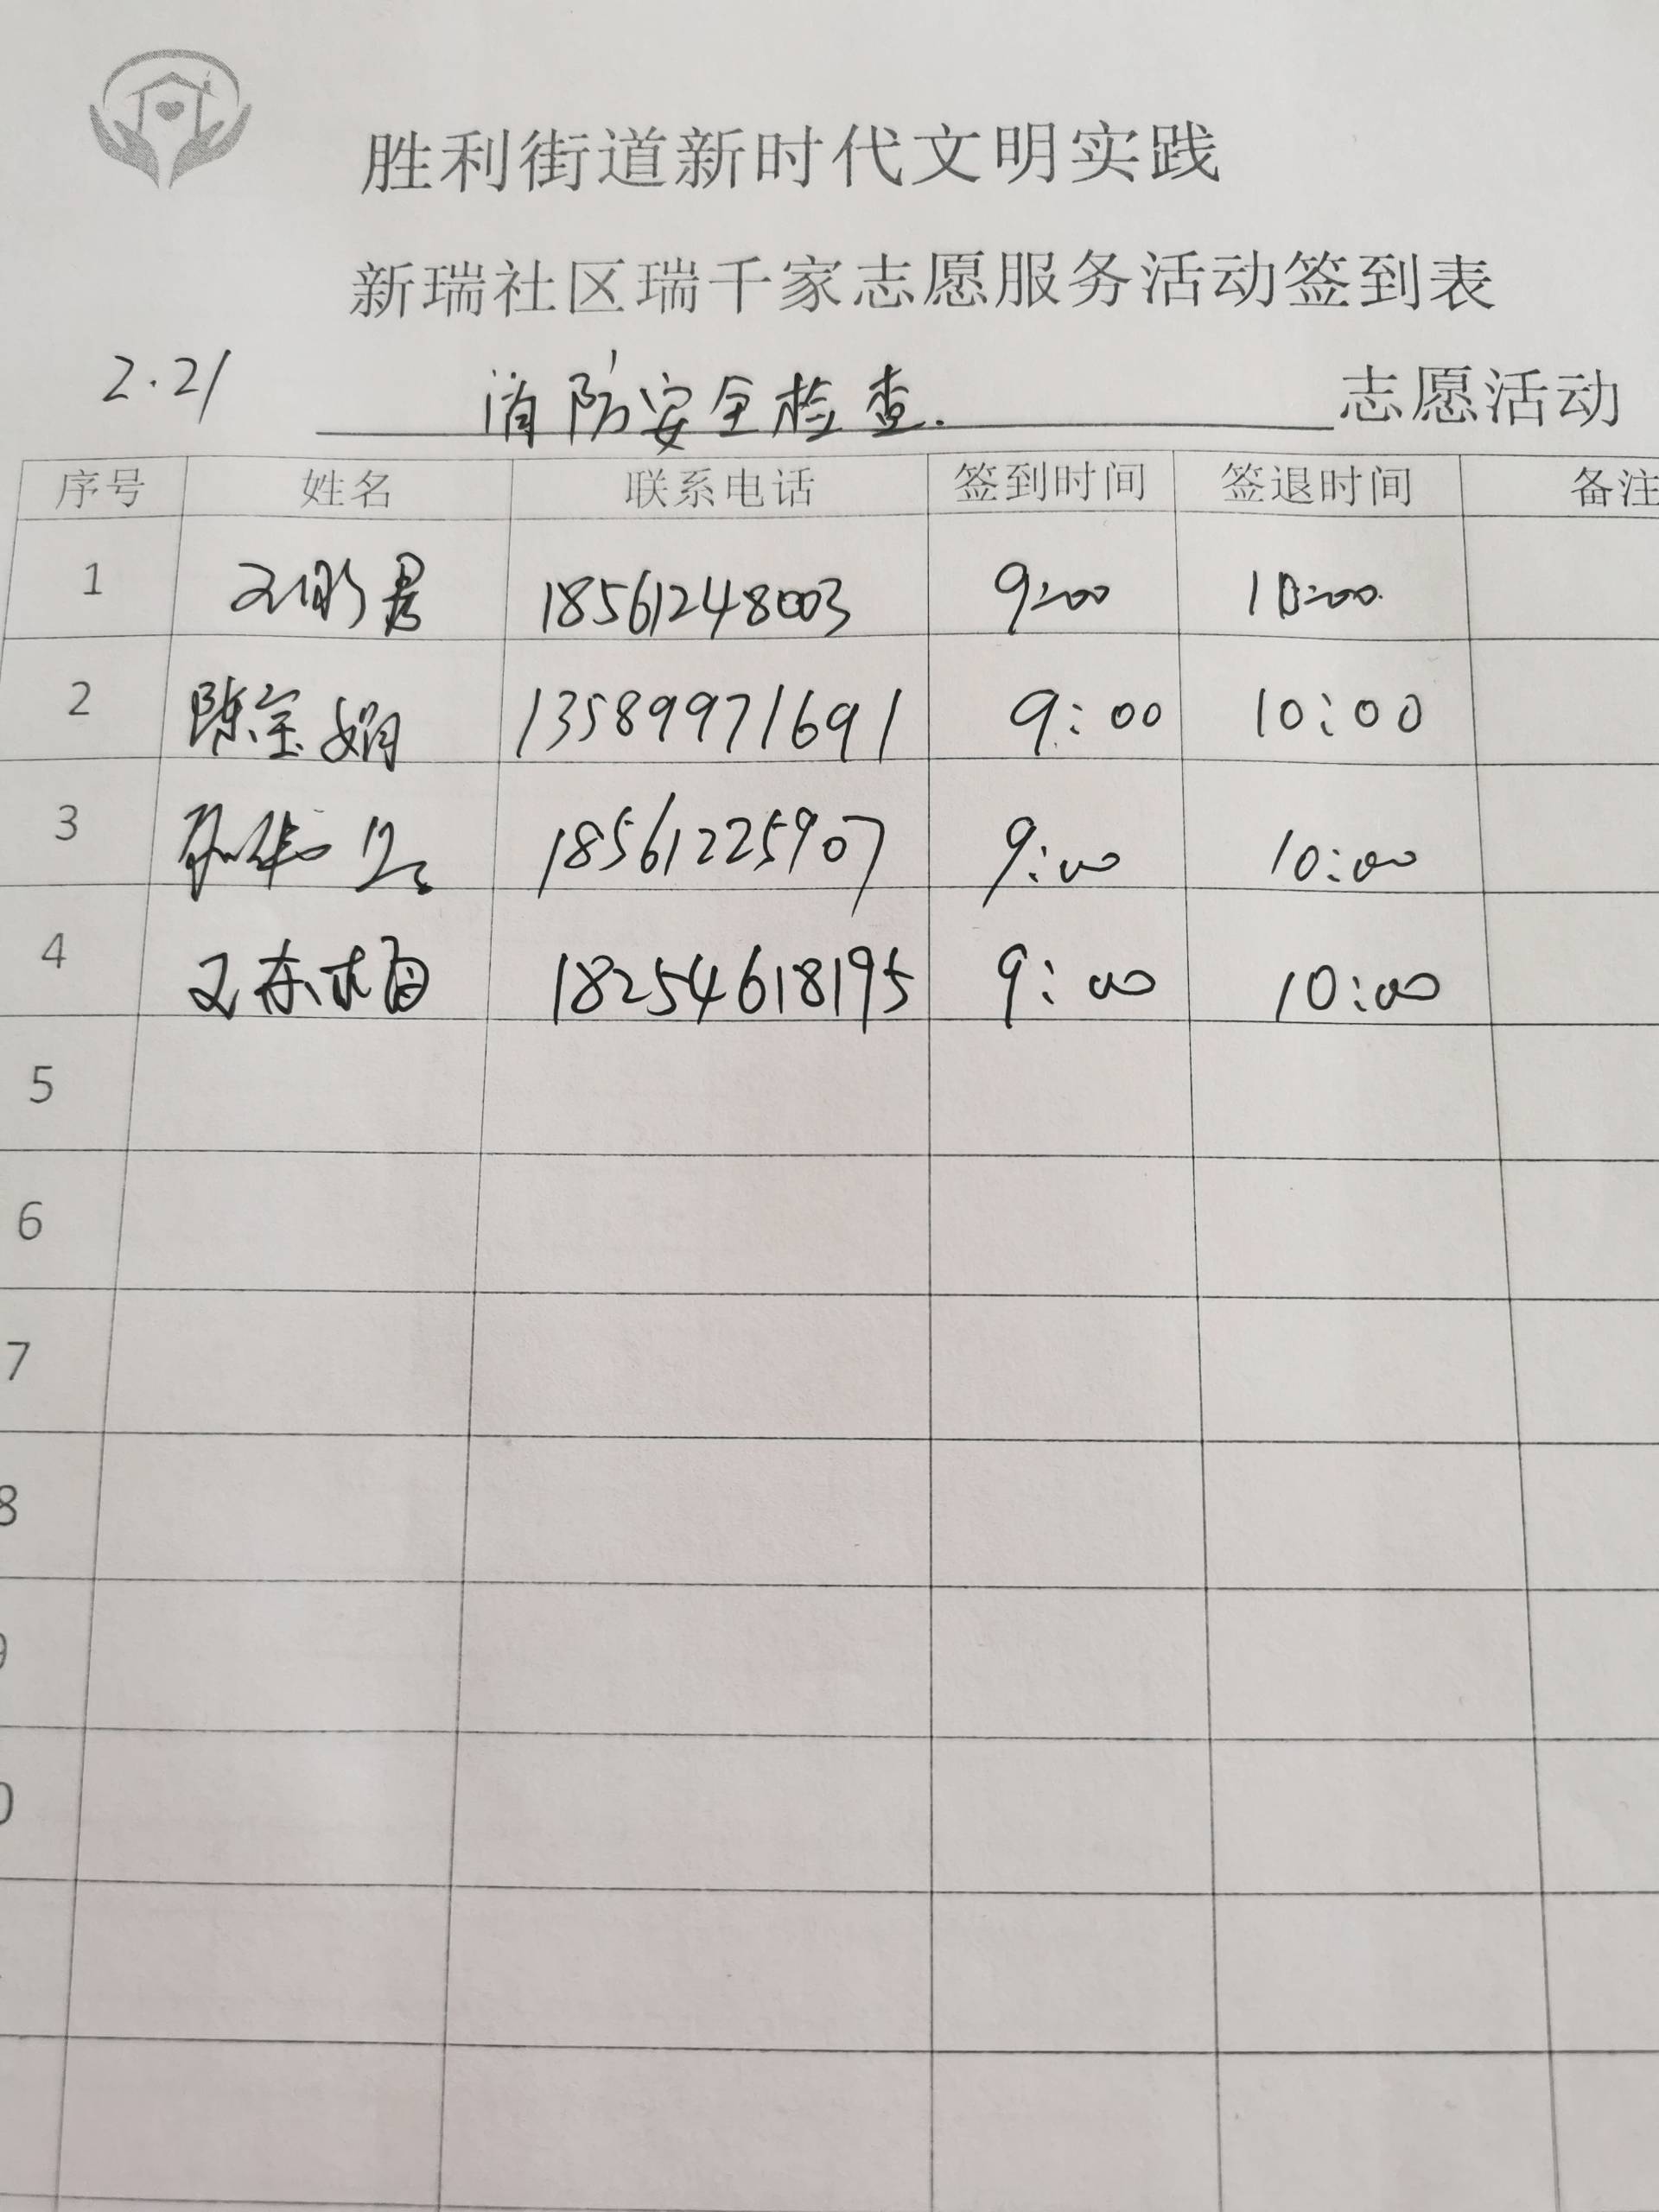 胜利街道新时代文明实践
新瑞社区瑞千家志愿服务活动签到表
2.21 消防安全检查. 志愿活动
序号 姓名 联系电话 签到时间 签退时间 备注
1 18561248003 9:00 10:00
2 陈宝娟 13589971691 9:00 10:00
3 18561225907 9:00 10:00
4 18254618195 9:00 10:00
5
6
7
8
9
0